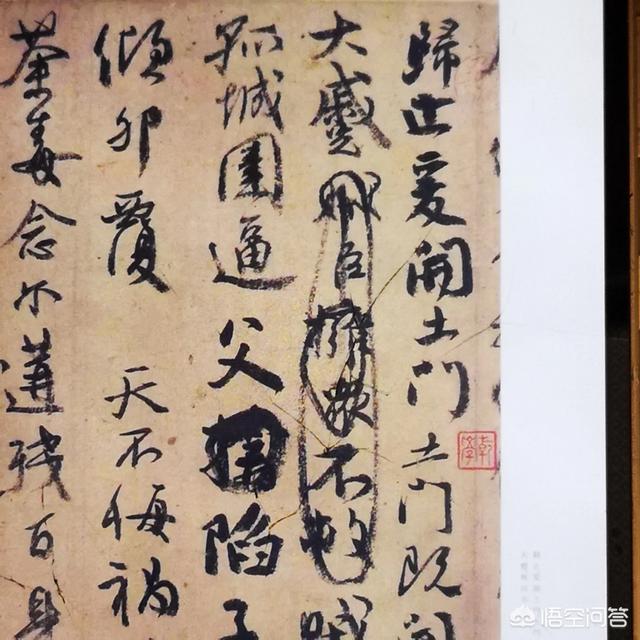 歸止爰開土門土門既開
大蹙賊臣擁眾不救賊
孤城圍逼父陷子
傾卵覆 天不悔禍
荼毒念爾遘殘百身
悟空问答